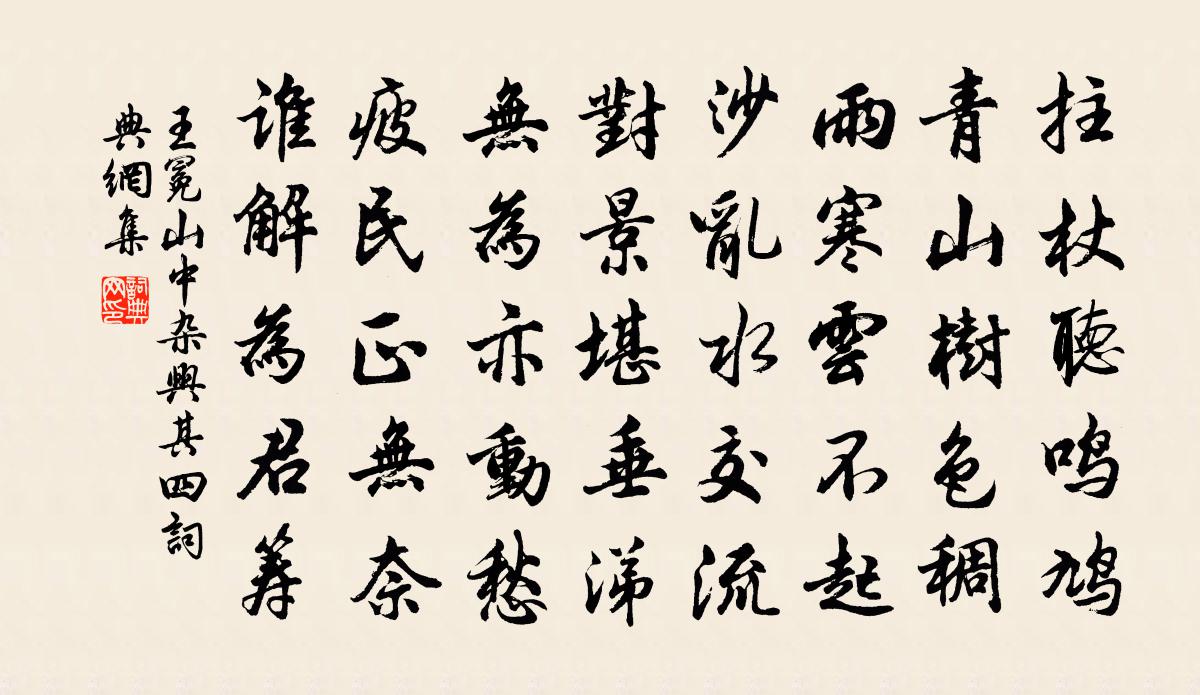 拄杖聽鳴鳩
青山樹色稠
雨寒雲不起
沙亂水交流
對景堪垂涕
無為亦動愁
疲民正無奈
谁解為君筹
王冕山中杂興其四詞
典網集
詞典网印